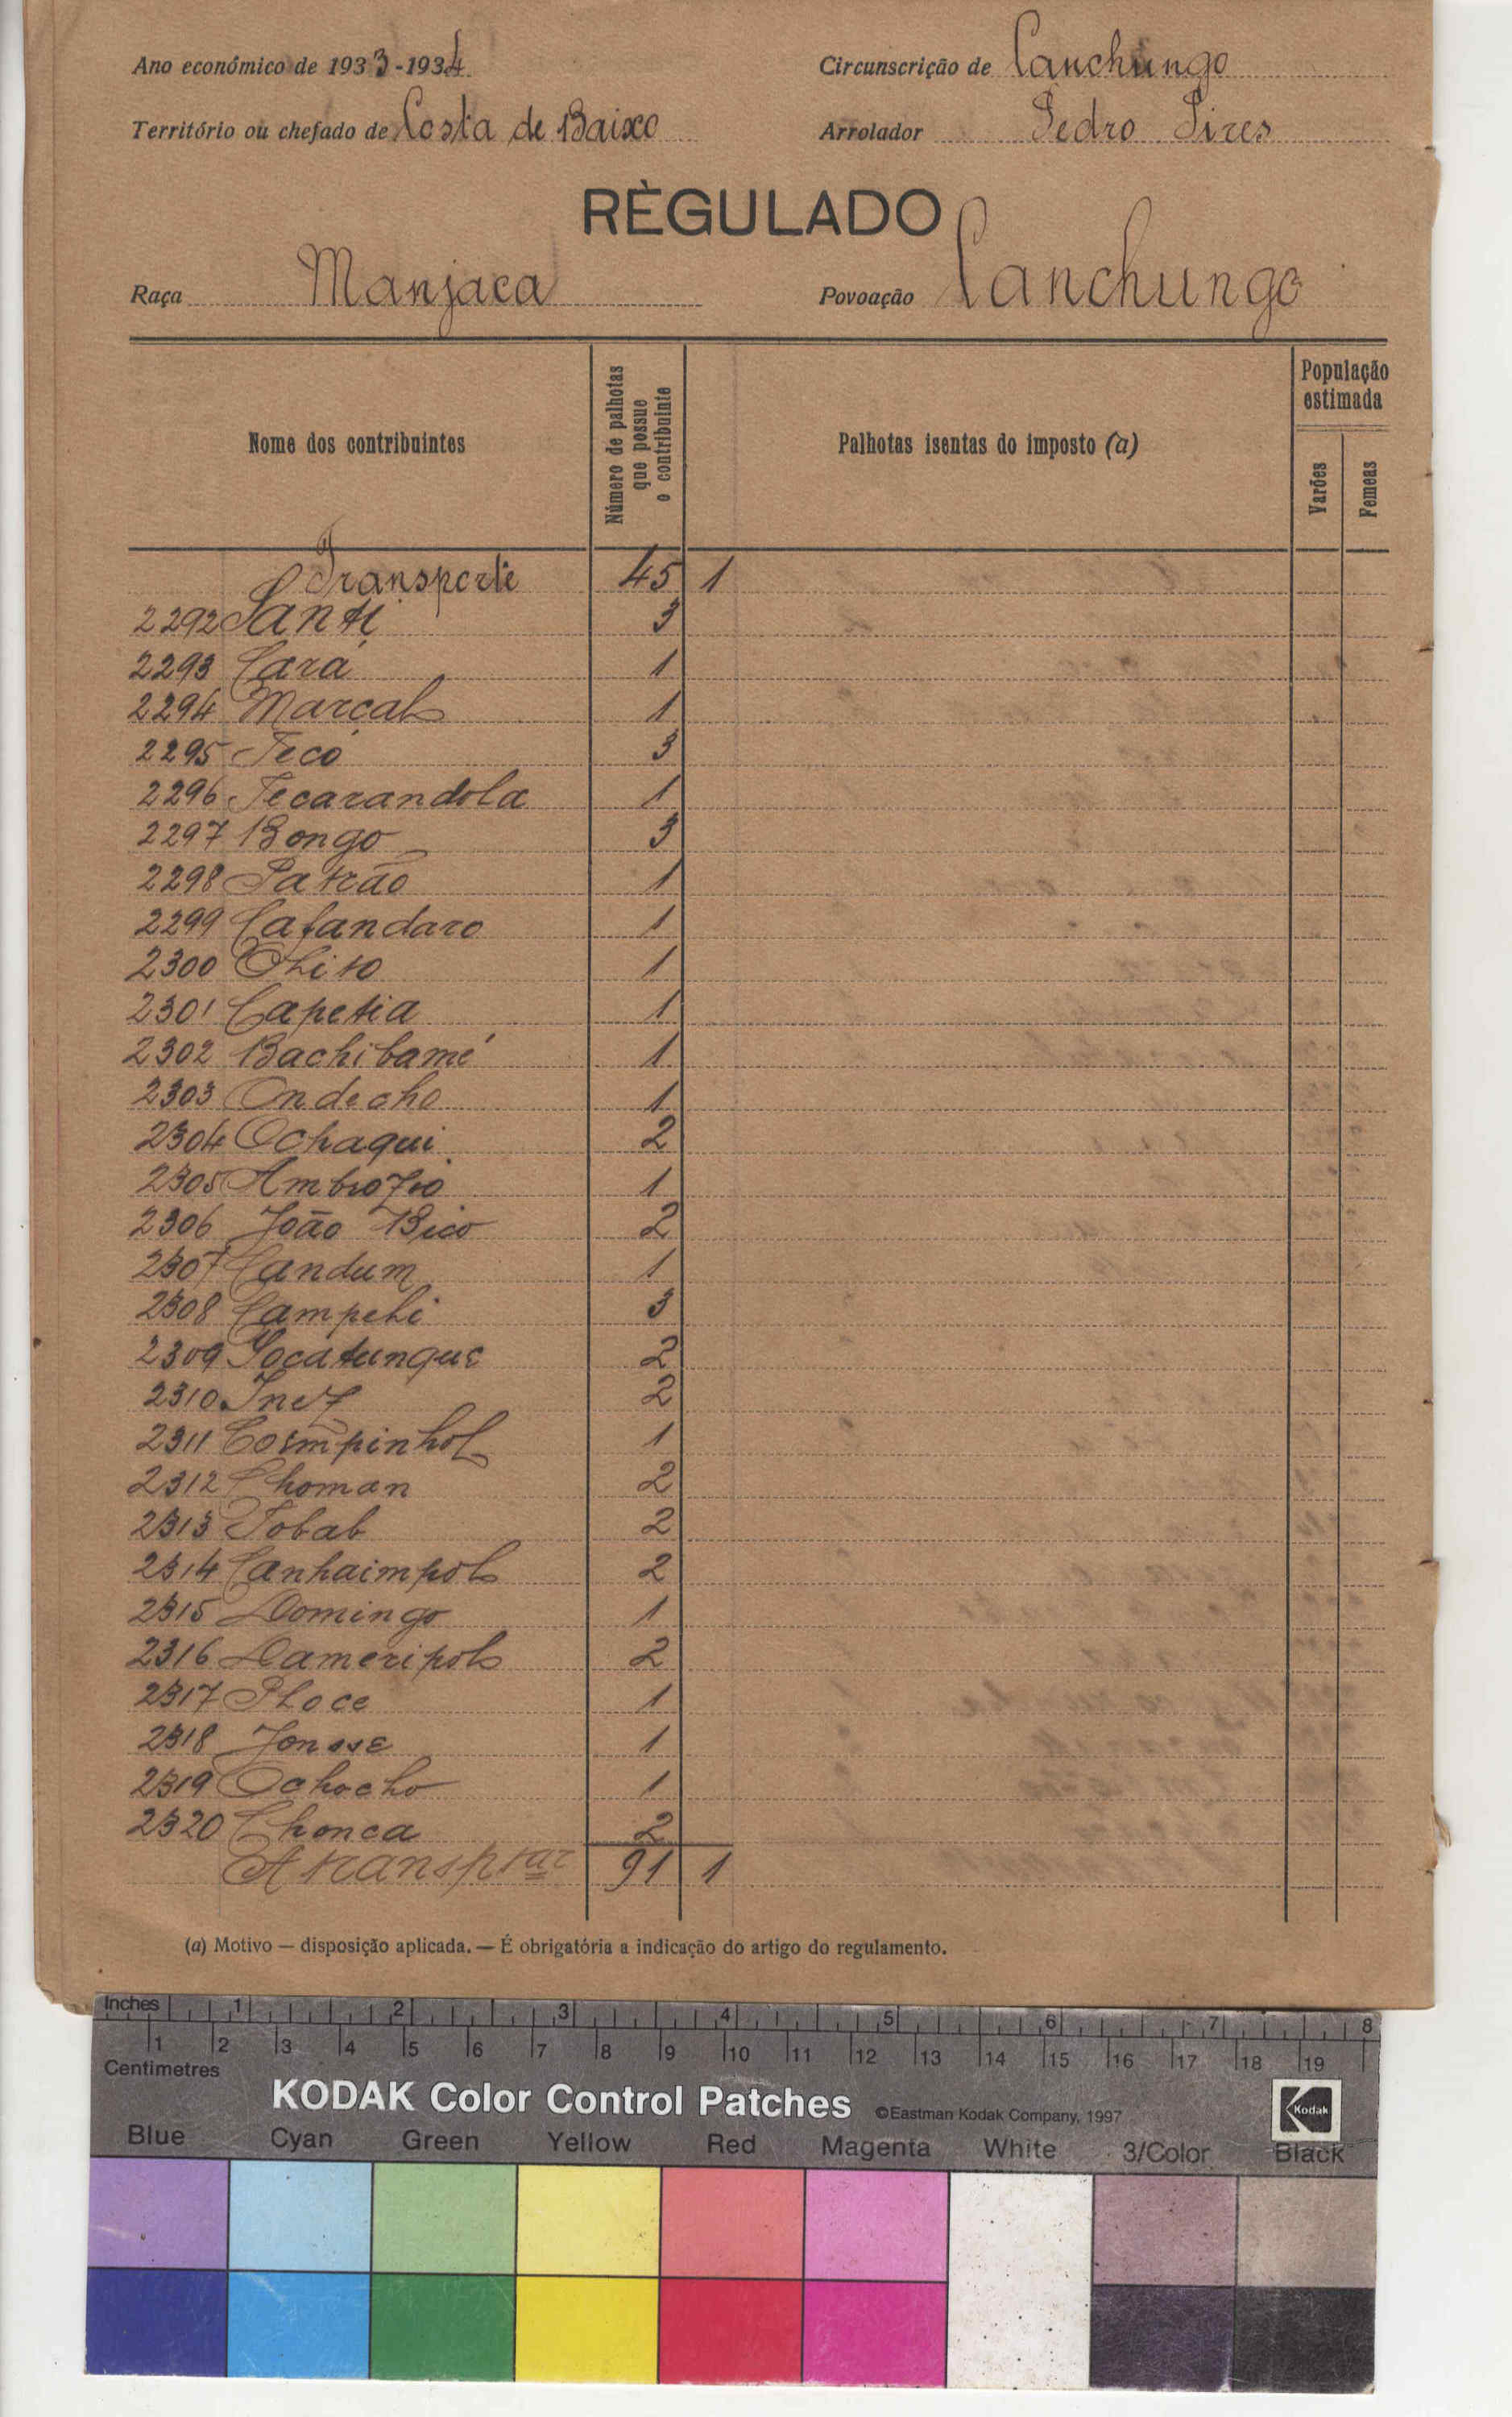 Ano económico de 1933-1934 Circunscrição de Canchungo
Território ou chefado de Costa de Baixo Arrolador Pedro Pires
RÈGULADO
Raça Manjaca Povoação Canchungo
Nome dos contribuintes
Número de palhotas que possue o contribuinte
Palhotas isentas do imposto (a)
População estimada
Varões
Femeas
Transporte 45 1
2292 Santi 3
2293 Cará 1
2294 Marcal 1
2295 Tecó 3
2296 Tecarandola 1
2297 Bongo 3
2298 Patrão 1
2299 Cafandaro 1
2300 1
2301 Capetia 1
2302 Bachibamé 1
2303 Ondecho 1
2304 Ochaqui 2
2305 Ambrozio 1
2306 João Bico 2
2307 Candum 1
2308 Campeli 3
2309 2
2310 Inez 2
2311 1
2312 Choman 2
2313 Tobab 2
2314 Canhaimpol 2
2315 Domingo 1
2316 Dameripol 2
2317 Ploce 1
2318 Jonsse 1
2319 Ochocho 1
2320 Chonca 2
A transptar 91 1
(a) Motivo — disposição aplicada. — É obrigatória a indicação do artigo do regulamento.
Inches 1 2 3 4 5 6 7 8
1 2 3 4 5 6 7 8 9 10 11 12 13 14 15 16 17 18 19
Centimetres
KODAK Color Control Patches ©Eastman Kodak Company, 1997 Kodak
Blue Cyan Green Yellow Red Magenta White 3/Color Black